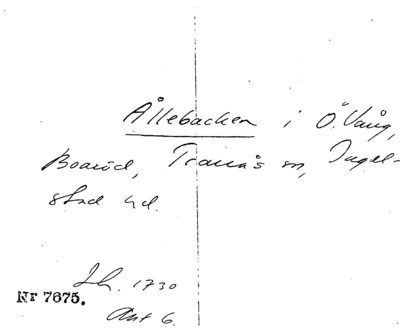 Ållebacken i Ö. Vång,
Boaröd, Tranås sn, Ingel-
stad hd.
Lh. 1730
Nr 7675.
Akt 6.